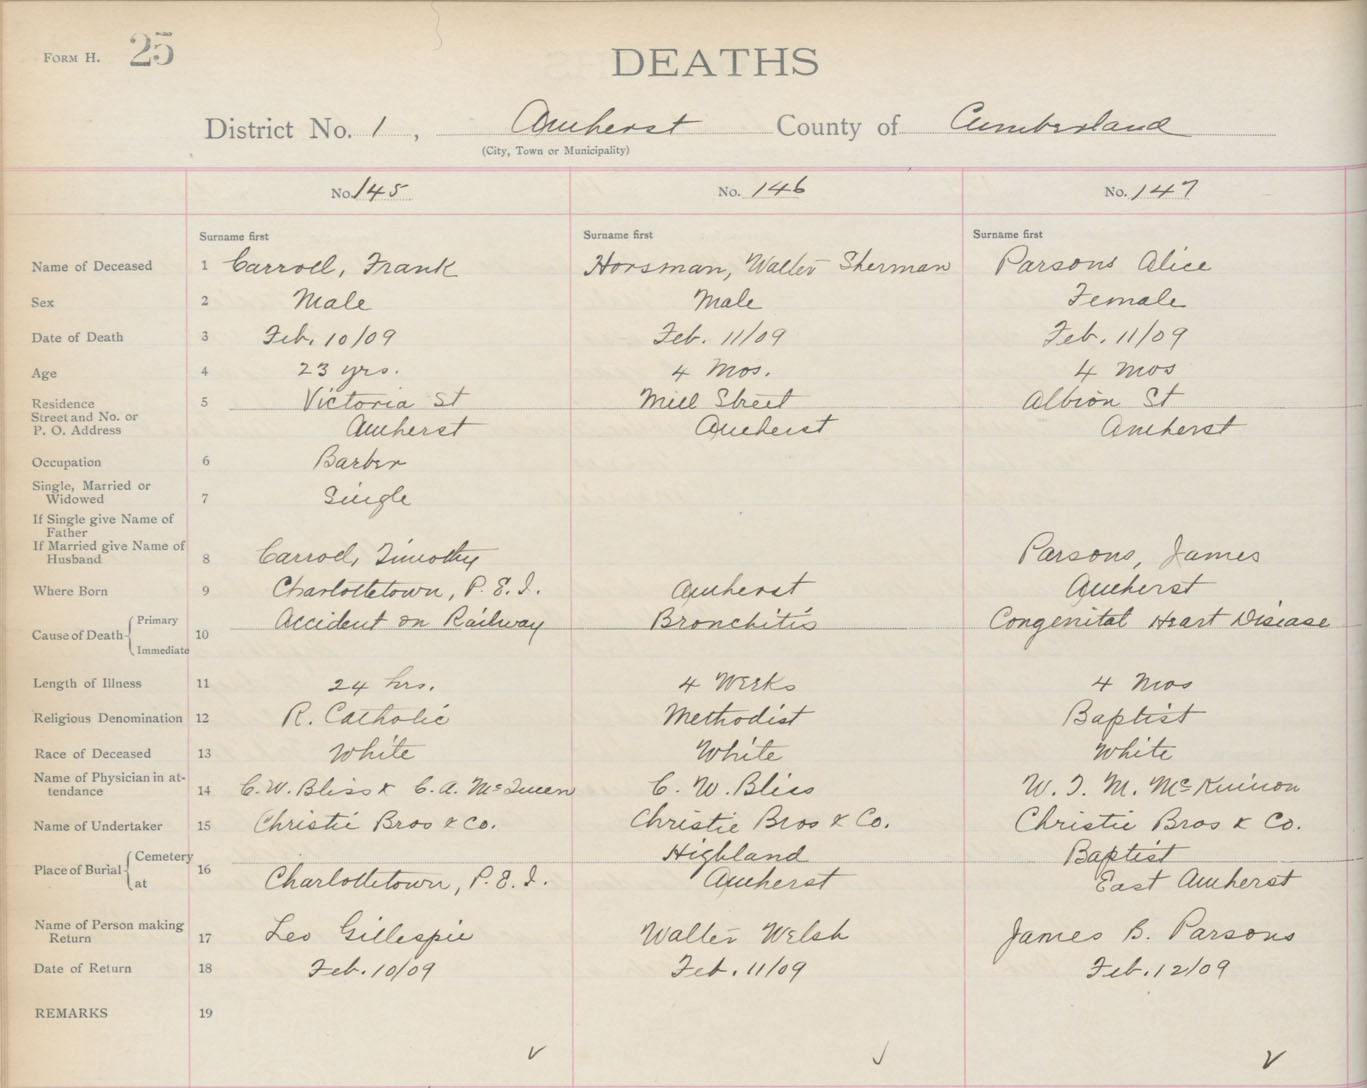 FORM H. 25
DEATHS
District No. 1, Amherst County of Cumberland
(City, Town or Municipality)
No. 145 No. 146 No. 147
Surname first Surname first Surname first
Name of Deceased 1 Carroll, Frank Horsman, Walter Sherman Parsons Alice
Sex 2 Male Male Female
Date of Death 3 Feb. 10/09 Feb. 11/09 Feb. 11/09
Age 4 23 yrs. 4 Mos. 4 Mos
Residence 5 Victoria St Mill Street Albion St
Street and No. or
P. O. Address Amherst Amherst Amherst
Occupation 6 Barber
Single, Married or
Widowed 7 Single
If Single give Name of
Father
If Married give Name of
Husband 8 Carrol, Timothy Parsons, James
Where Born 9 Charlottetown, P.E.I. Amherst Amherst
Cause of Death Primary 10 Accident on Railway Bronchitis Congenital Heart Disease
Immediate
Length of Illness 11 24 hrs. 4 Weeks 4 Mos
Religious Denomination 12 R. Catholic Methodist Baptist
Race of Deceased 13 White White White
Name of Physician in at-
tendance 14 C. W. Bliss & C. A. McQueen C. W. Bliss W. T. M. McKinnon
Name of Undertaker 15 Christie Bros & Co. Christie Bros & Co. Christie Bros & Co.
Place of Burial Cemetery 16 Highland Baptist
at Charlottetown, P.E.I. Amherst East Amherst
Name of Person making
Return 17 Leo Gillespie Walter Welsh James B. Parsons
Date of Return 18 Feb. 10/09 Feb. 11/09 Feb. 12/09
REMARKS 19